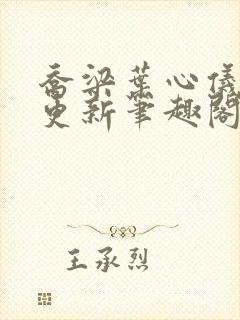 乔梁葉心儀
更新筆趣閣
王承烈